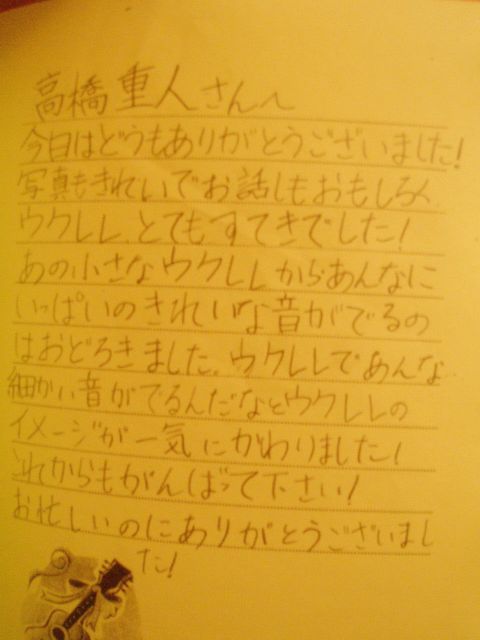 高橋重人さんへ
今日はどうもありがとうございました!
写真もきれいでお話しもおもしろく、
ウクレレ、とてもすてきでした!
あの小さなウクレレからあんなに
いっぱいのきれいな音がでるの
はおどろきました。ウクレレであんな
細かい音がでるんだなとウクレレの
イメージが一気にかわりました!
これからもがんばって下さい!
お忙しいのにありがとうございまし
た!